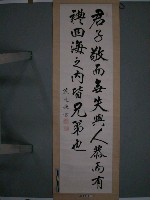 君子敬而無失與人恭而有
禮四海之内皆兄弟也